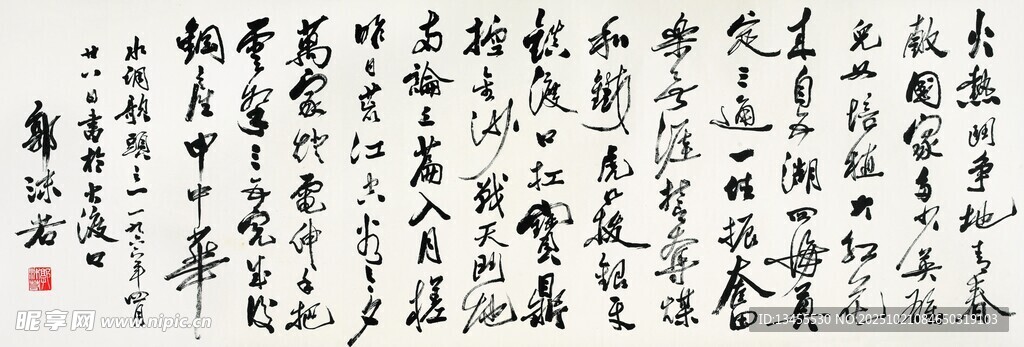 火熱鬥爭地青春
獻國家多少英雄
兒女培植大紅花
来自五湖四海員
定三通一住振奮
樂無涯攀奪煤
和鐵虎口拔銀牙
鉄渡口扛寶鼎
控金沙戰天鬥地
兩論三篇入月槎
昨日荒江空谷今夕
萬家燈電伸手把
雲拏三五完成後
鋼產中中華
水調歌頭之一一九六六年四月
廿八日書於大渡口
郭沫若
昵享网 www.nipic.cn
ID:13455530 NO:20251021084650319103